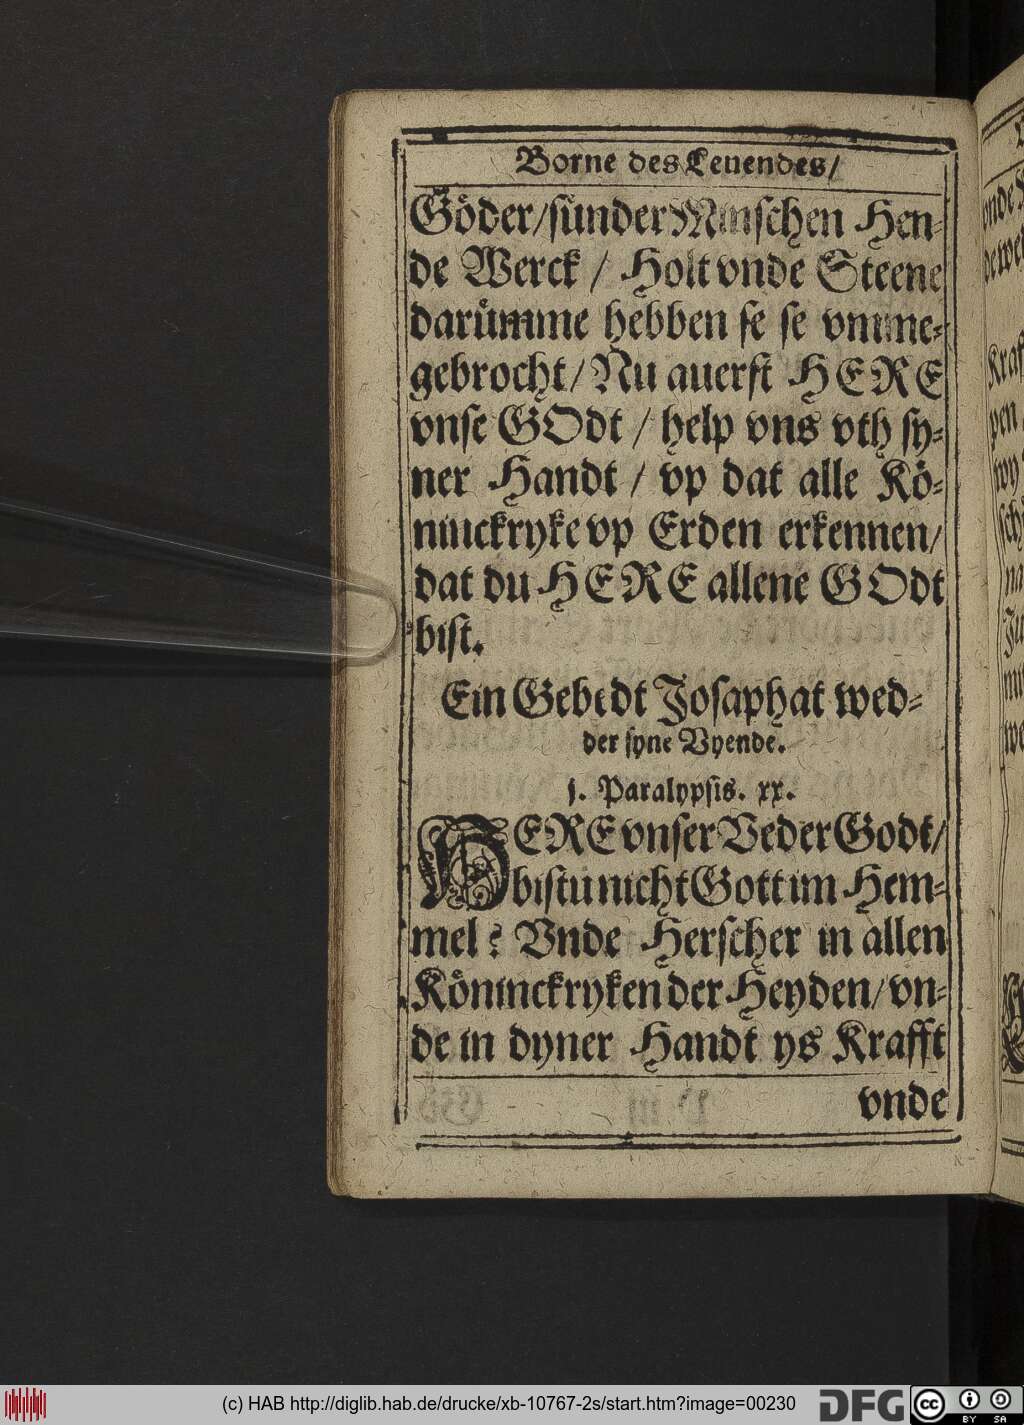 Borne des Leuendes/
Göder/ sünder Minschen Hen-
de Werck / Holt vnde Steene
darümme hebben se se vmme-
gebrocht/ Nu auerst HERE
vnse GOdt / help vns vth sy-
ner Handt / vp dat alle Kö-
ninckryke vp Erden erkennen/
dat du HERE allene GOdt
bist.
Ein Gebedt Josaphat wed-
der syne Vyende.
j. Paralypsis. xx.
HERE vnser Veder Godt/
bistu nicht Gott im Hem-
mel? Vnde Herscher in allen
Köninckryken der Heyden/ vn-
de in dyner Handt ys Krafft
vnde
(c) HAB http://diglib.hab.de/drucke/xb-10767-2s/start.htm?image=00230
DFG
cc BY SA